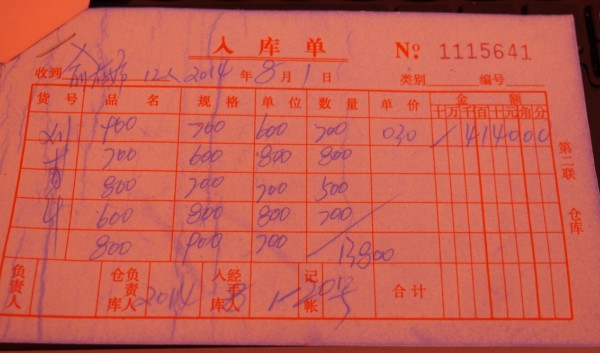 入库单 № 1115641
收到 12人 2014年8月1日 类别 编号
货号 品名 规格 单位 数量 单价 金额
十万千百十元角分
400 700 600 700 030 414000
700 600 800 800
800 700 700 500
600 800 800 700
800 900 700 13800
第二联 仓库
负责人 仓库负责人 2014 入库经手人 8 1 记帐 合计